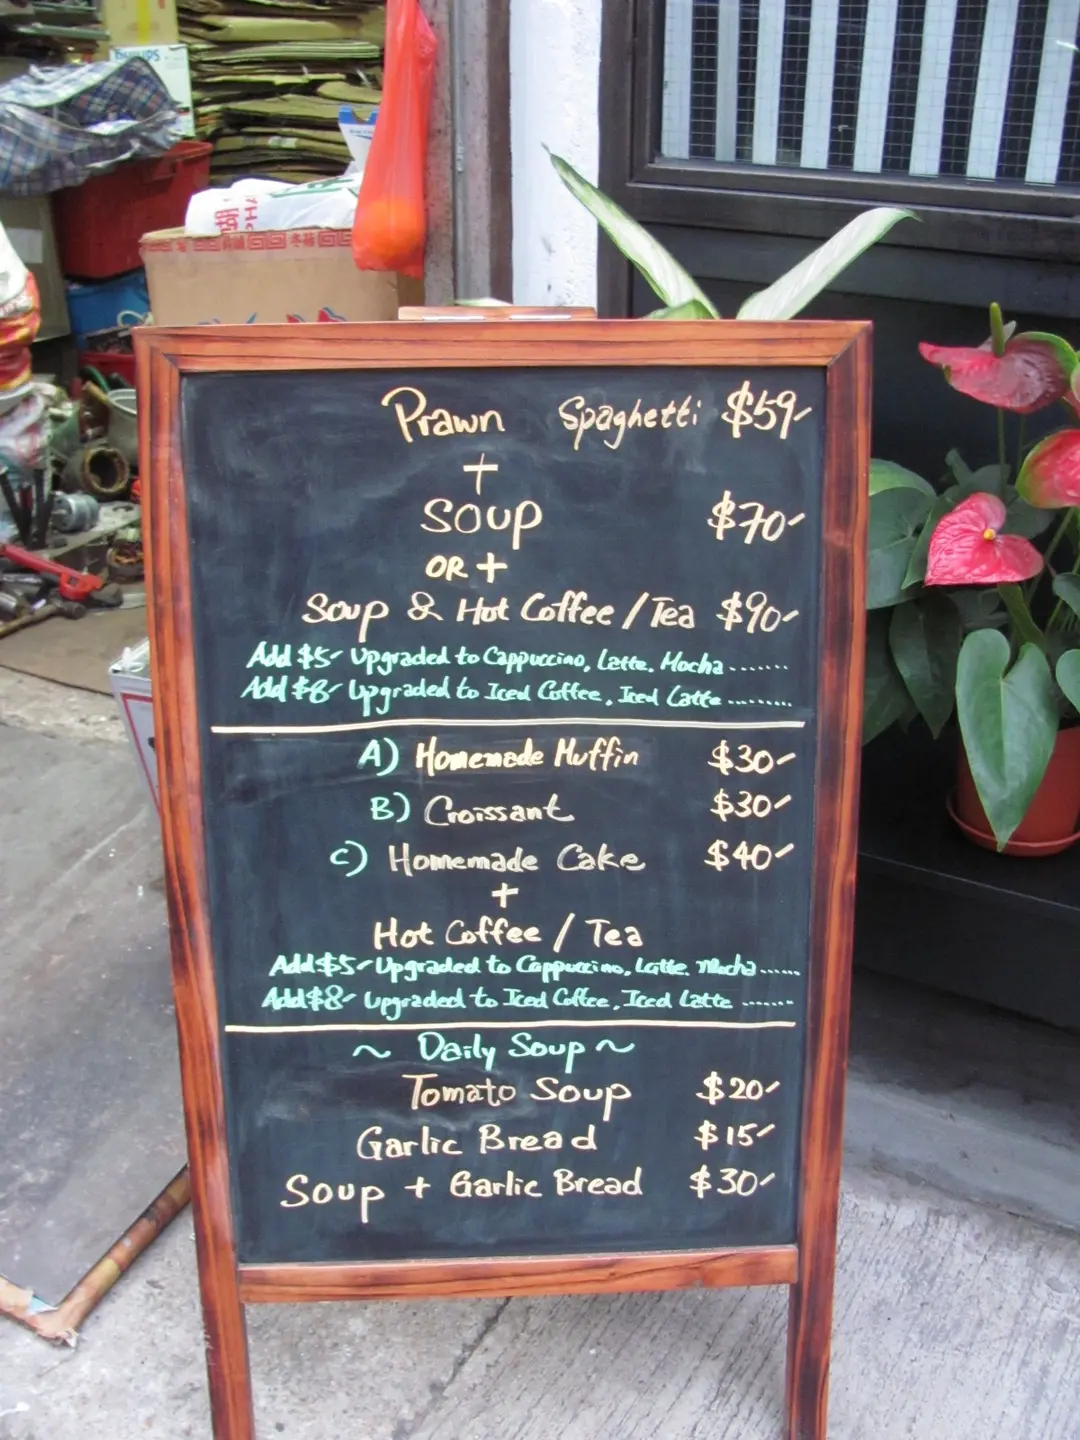 PHILIPS
Prawn Spaghetti $59-
+
SOUP $70-
OR +
Soup & Hot Coffee / Tea $90-
Add $5- Upgraded to Cappuccino, Latte. Mocha .......
Add $8- Upgraded to Iced Coffee, Iced Latte .........
A) Homemade Muffin $30-
B) Croissant $30-
C) Homemade Cake $40-
+
Hot Coffee / Tea
Add $5- Upgraded to Cappuccino, Latte. Mocha ......
Add $8- Upgraded to Iced Coffee, Iced Latte .......
~ Daily Soup ~
Tomato Soup $20-
Garlic Bread $15-
Soup + Garlic Bread $30-